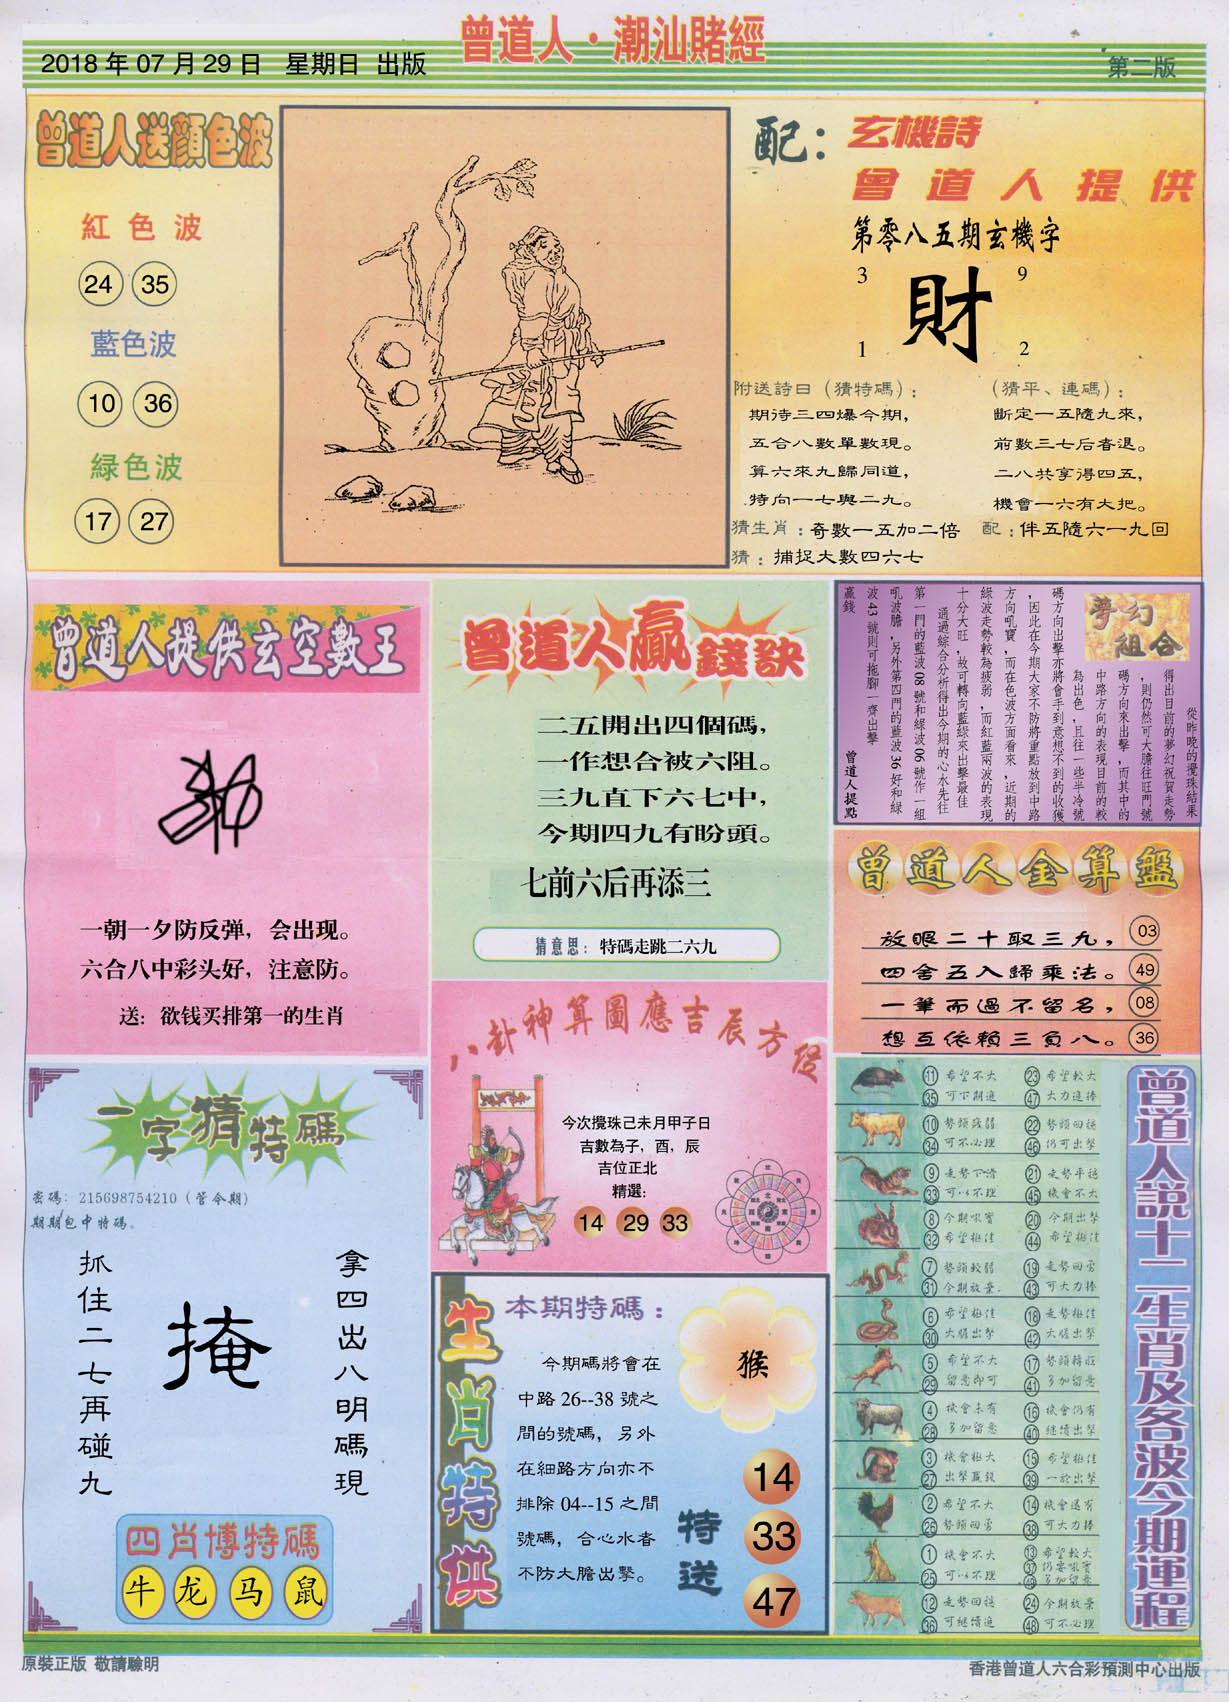 曾道人·潮汕賭經
2018年07月29日 星期日 出版
第二版
曾道人送顏色波
紅色波
24 35
藍色波
10 36
緑色波
17 27
配：玄機詩
曾道人提供
第零八五期玄機字
3 9
財
1 2
附送詩曰（猜特碼）：
期待三四爆今期，
五合八數單數現。
算六來九歸同道，
特向一七與二九。
（猜平、連碼）：
斷定一五隨九來，
前數三七后者退。
二八共享得四五，
機會一六有大把。
猜生肖：奇數一五加二倍
配：伴五隨六一九回
猜：捕捉大數四六七
曾道人提供玄空數王
一朝一夕防反弹，会出现。
六合八中彩头好，注意防。
送：欲钱买排第一的生肖
曾道人贏錢訣
二五開出四個碼，
一作想合被六阻。
三九直下六七中，
今期四九有盼頭。
七前六后再添三
猜意思：特碼走跳二六九
夢幻
組合
從昨晚的攪珠結果
得出目前的夢幻祝賀走勢
，則仍然可大膽往旺門號
碼方向來出擊，而其中的
中路方向的表現目前的較
為出色，且往一些半冷號
碼方向出擊亦將會手到意想不到的收獲
，因此在今期大家不防將重點放到中路
方向吼寶，而在色波方面看來，近期的
緑波走勢較為疲弱，而紅藍兩波的表現
十分大旺，故可轉向藍綠來出擊最佳
通過綜合分析得出今期的心水先往
第一門的藍波08號和緑波06號作一組
吼波膽，另外第四門的藍波36好和緑
波43號則可拖腳一齊出擊
贏錢
曾道人提點
曾道人金算盤
放眼二十取三九， 03
四舍五入歸乘法。 49
一筆而過不留名， 08
想互依賴三負八。 36
八卦神算圖應吉辰方位
今次攪珠己未月甲子日
吉數為子，酉，辰
吉位正北
精選：
14 29 33
一字猜特碼
密碼：215698754210（管令期）
期期包中特碼。
拿四出八明碼現
掩
抓住二七再碰九
四肖博特碼
牛 龙 马 鼠
生肖特供
本期特碼：
猴
今期碼將會在
中路26--38號之
間的號碼，另外
在細路方向亦不
排除04--15之間
號碼，合心水者
不防大膽出擊。
特送
14
33
47
曾道人説十二生肖及各波今期運程
11 希望不大 23 希望較大
35 可下期追 47 大力追捧
10 勢頭殘弱 22 勢頭回穩
34 可不必理 46 仍可出擊
9 走勢下滑 21 走勢平穩
33 可以不理 45 機會不大
8 今期吼寶 20 今期出擊
32 希望極佳 44 希望極佳
7 勢頭較弱 19 走勢回勇
31 今期放棄 43 可大力捧
6 希望極佳 18 走勢極佳
30 大膽出擊 42 大膽出擊
5 希望不大 17 勢頭轉旺
29 留意即可 41 多加留意
4 機會未有 16 機會仍有
28 多加留意 40 繼續出擊
3 機會極大 15 希望極佳
27 出擊贏錢 39 一於出擊
2 希望不大 14 機會還有
26 勢頭回勇 38 可大力捧
1 機會不大 13 希望較大
25 可以不理 37 仍要吼寶
49 多加留意
12 走勢回穩 24 今期放棄
36 可繼續追 48 可不必理
原裝正版 敬請驗明
香港曾道人六合彩預測中心出版